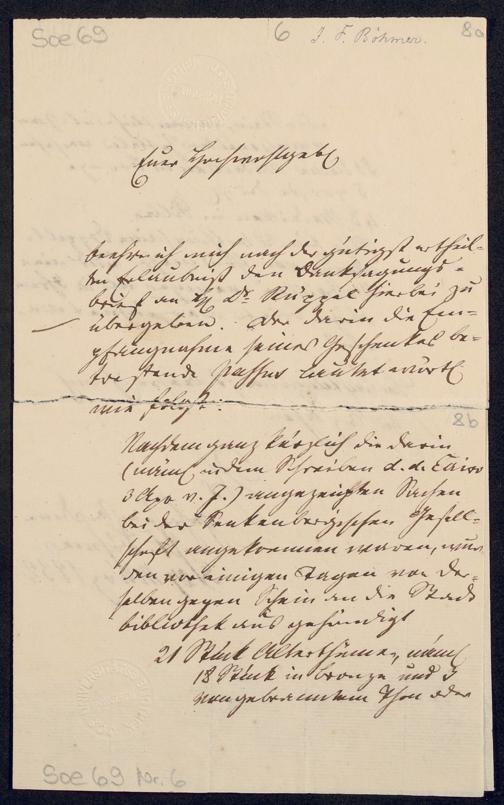 Soe 69
6
J. F. Böhmer.
8a
Euer Hochwohlgeb
beehre ich mich nach der gütigst ertheil-
ten Erlaubniß den Danksagungs-
brief an H Dr. Rüppel hierbei zu
übergeben. Der darin die Em-
pfangnahme seines Geschenkes be-
treffende Passus lautet wörtl
wie folgt:
8b
Nachdem ganz kürzlich die darin
(näml in dem Schreiben d. d. Cairo
v. J.) angezeigten Sachen
bei der Senkenbergischen Gesell-
schaft angekommen waren, wur
den vor einigen Tagen von der-
selben gegen Schein an die Stadt
bibliothek ausgehändigt
21 Stück Alterthümer, näml
18 Stück in bronze und 3
von gebranntem Thon oder
Soe 69 Nr. 6